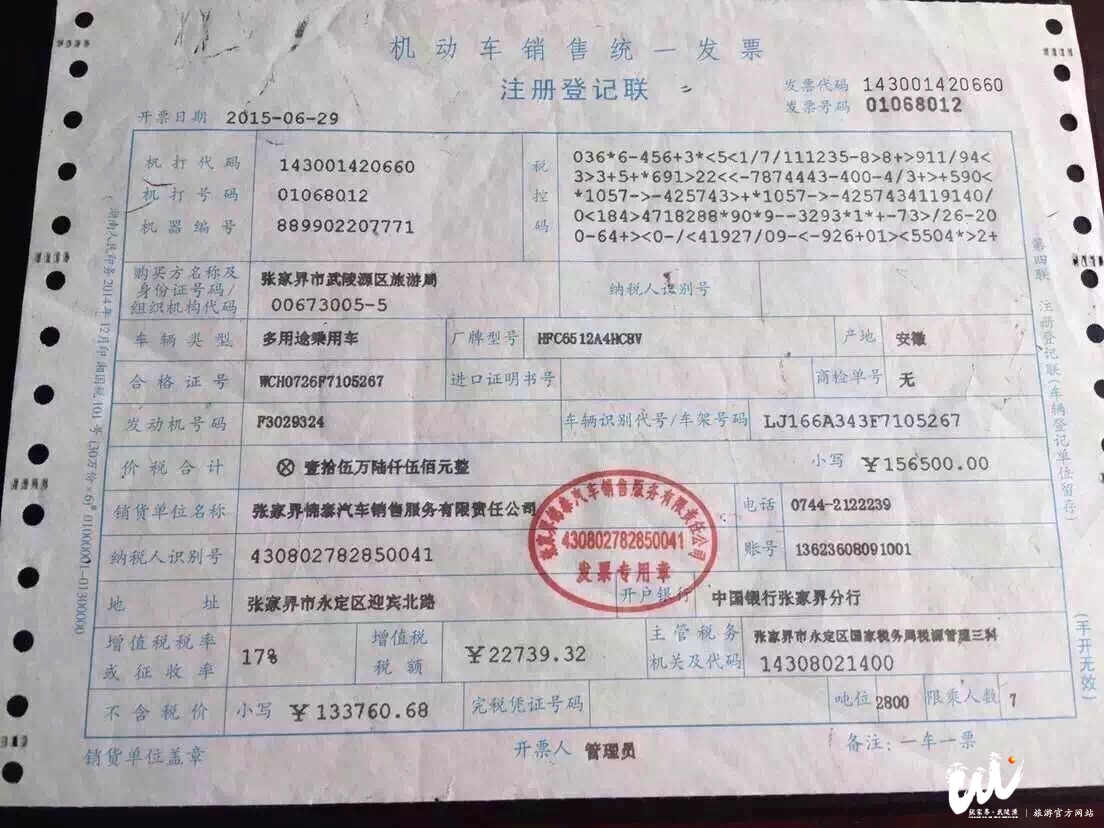 机动车销售统一发票
注册登记联
发票代码 143001420660
发票号码 01068012
开票日期 2015-06-29
机打代码 143001420660
机打号码 01068012
机器编号 889902207771
税控码
036*6-456+3*<5<1/7/111235-8>8+>911/94<
3>3+5+*691>22<<-7874443-400-4/3+>+590<
*1057->-425743>+*1057->-4257434119140/
0<184>4718288*90*9--3293*1*+-73>/26-20
0-64+><0-/<41927/09-<-926+01><5504*>2+
购买方名称及
身份证号码/
组织机构代码
张家界市武陵源区旅游局
00673005-5
纳税人识别号
车辆类型 多用途乘用车 厂牌型号 HFC6512A4HC8V 产地 安徽
合格证号 WCH0726F7105267 进口证明书号 商检单号 无
发动机号码 F3029324 车辆识别代号/车架号码 LJ166A343F7105267
价税合计 ⊗壹拾伍万陆仟伍佰元整 小写 ¥156500.00
销货单位名称 张家界锦泰汽车销售服务有限责任公司 电话 0744-2122239
纳税人识别号 430802782850041 账号 13623608091001
地址 张家界市永定区迎宾北路 开户银行 中国银行张家界分行
增值税税率
或征收率
17%
增值税
税额
¥22739.32
主管税务
机关及代码
张家界市永定区国家税务局税源管理三科
14308021400
不含税价 小写 ¥133760.68 完税凭证号码 吨位 2800 限乘人数 7
销货单位盖章 开票人 管理员 备注:一车一票
张家界锦泰汽车销售服务有限责任公司
430802782850041
发票专用章
第四联 注册登记联(车辆登记单位留存)
(手开无效)
张家界·武陵源 | 旅游官方网站